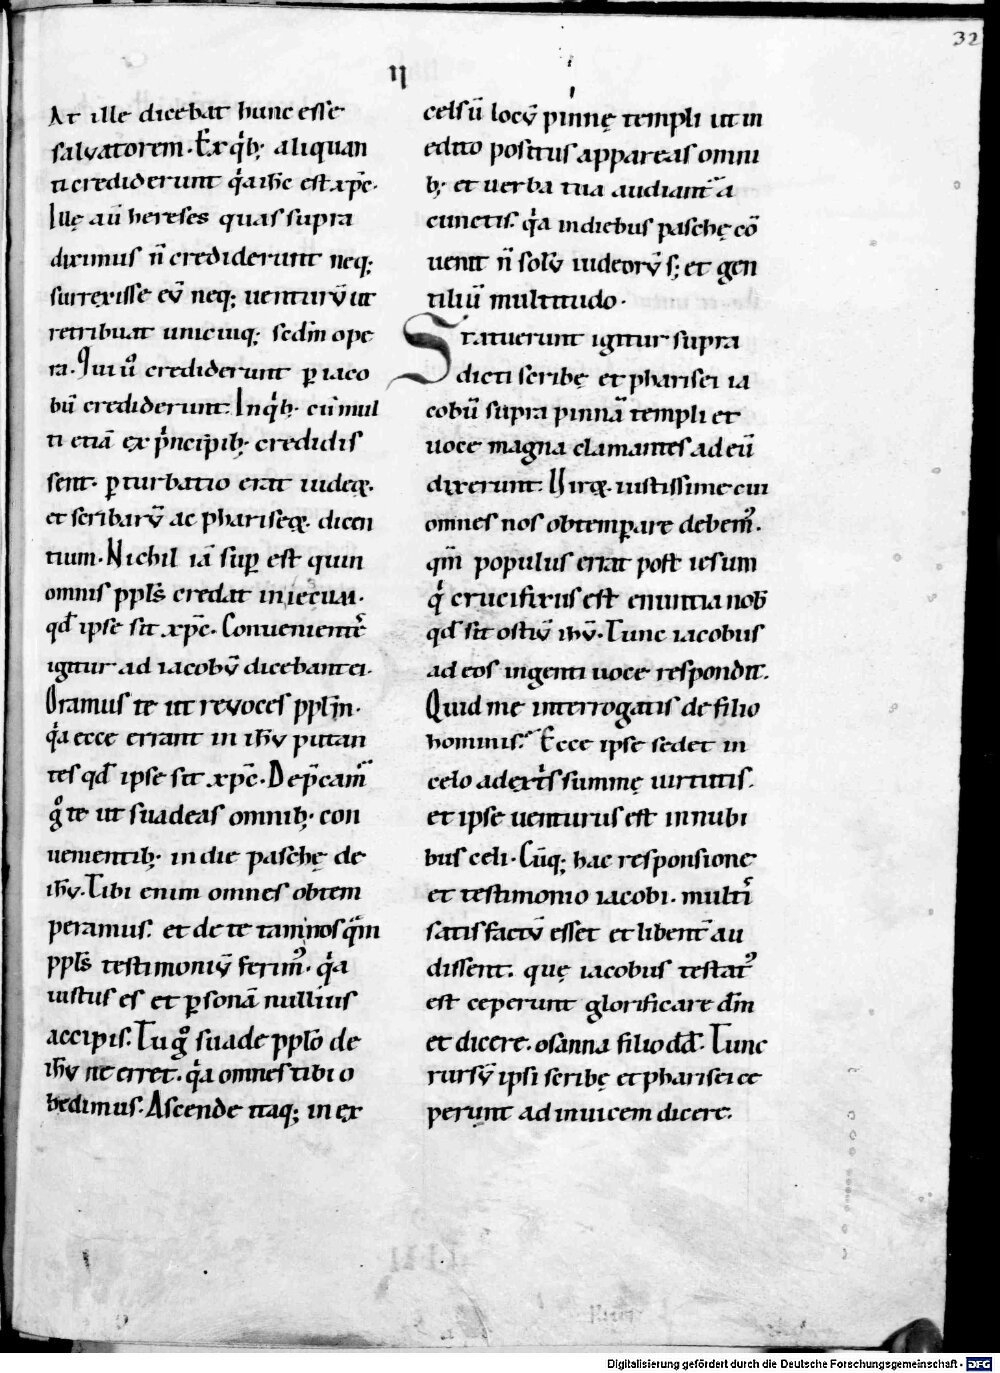 32
II
At ille dicebat hunc esse
salvatorem. Ex q̇b; aliquan
ti crediderunt q̇a ih̅c est xp̅c.
Illę aū hereses quas supra
diximus n̄ crediderunt neq;
surrexisse eū neq; venturū ut
retribuat unicuiq; sedm̄ ope
ra. Qui ů crediderunt p̱ iaco
bū crediderunt. In q̇b; cū mul
ti etiā ex p̍ncipib; credidis
sent. p̱turbatio erat iudeoꝝ.
et scribarū ac phariseoꝝ. dicen
tium. Nichil iā sup̱ est quin
omnis ppl̅s credat in iecum.
qđ ipse sit xp̅c. Convenientes
igitur ad iacobū dicebant ei.
Oramus te ut revoces ppl̅m.
q̇a ecce errant in ih̅v putan
tes qđ ipse sit xp̅c. Dep̅cam̾
g̊ te ut suadeas omnib; con
venientib; in die paschę de
ih̅v. Tibi enim omnes obtem
peramus. et de te tam nos qm̄
ppl̅s testimoniū ferim̾. q̇a
iustus es et p̱sonā nullius
accipis. Tu g̊ suade ppl̅o de
ih̅v ne erret. q̇a omnes tibi o
bedimus. Ascende itaq; in ex
celsū locū pinnę templi ut in
edito positus appareas omni
b; et verba tua audiant̾ a
cunctis. q̇a in diebus paschę cō
venit n̄ solū iudeorū s; et gen
tiliū multitudo.
Statuerunt igitur supra
dicti scribę et pharisei ia
cobū supra pinnā templi et
voce magna clamantes ad eū
dixerunt. Viroꝝ iustissime cui
omnes nos obtemp̱are debem̾.
qm̄ populus errat post iesum
q̇ crucifixus est enuntia nob̅
qđ sit ostiū ih̅v. Tunc iacobus
ad eos ingenti voce respondit.
Quid me interrogatis de filio
hominis? Ecce ipse sedet in
celo a dextris summę virtutis.
et ipse venturus est in nubi
bus celi. Cūq; hac responsione
et testimonio iacobi. multis
satisfactū esset et libent̾ au
dissent. quę iacobus testat̾
est ceperunt glorificare dm̄
et dicere. osanna filio dđ. Tunc
rursū ipsi scribę et pharisei ce
perunt ad invicem dicere.
Digitalisierung gefördert durch die Deutsche Forschungsgemeinschaft - DFG